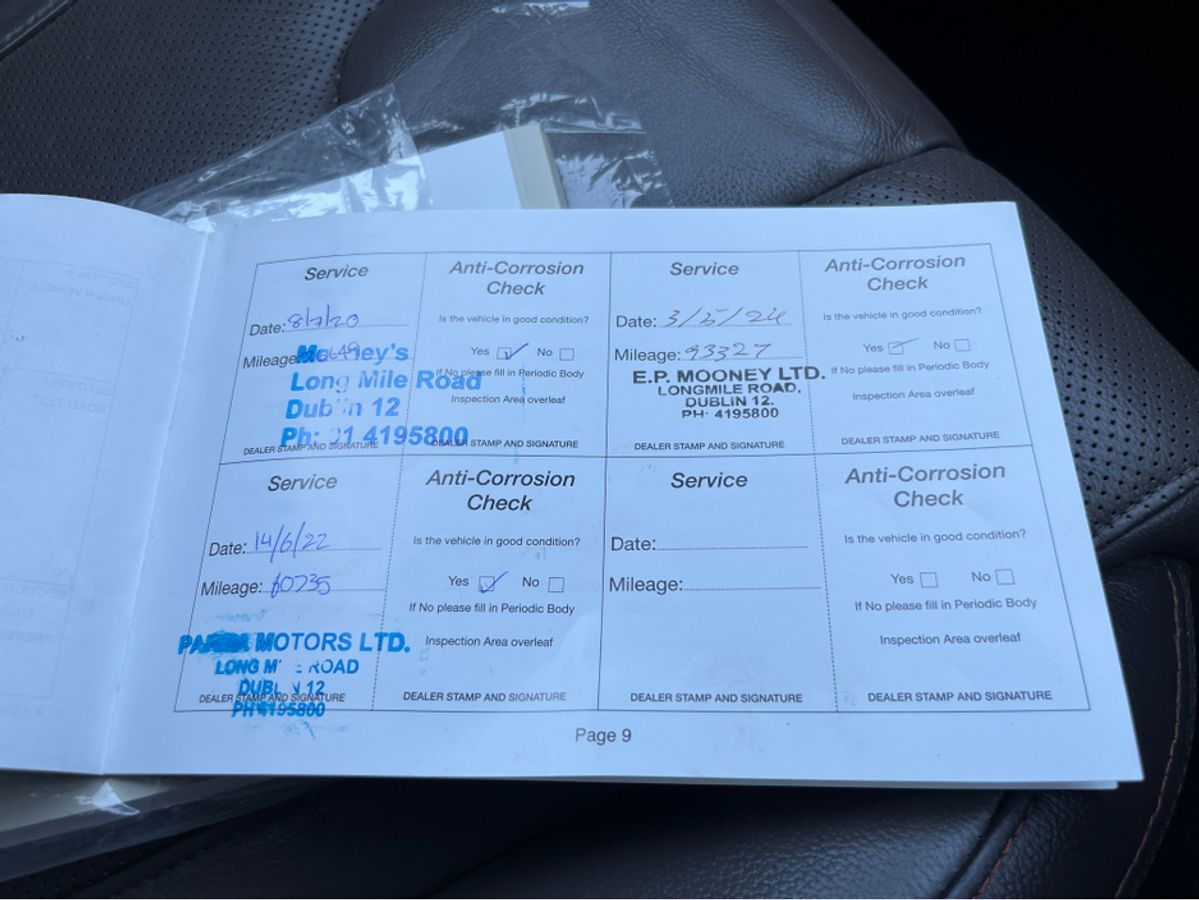 Service
Anti-Corrosion
Check
Date: 8/7/20
Is the vehicle in good condition?
Mileage:
Yes No
Mooney's
If No please fill in Periodic Body
Long Mile Road
Inspection Area overleaf
Dublin 12
Ph: 01 4195800
DEALER STAMP AND SIGNATURE
DEALER STAMP AND SIGNATURE
Service
Anti-Corrosion
Check
Date: 3/5/24
Is the vehicle in good condition?
Mileage: 93327
Yes No
E.P. MOONEY LTD.
If No please fill in Periodic Body
LONGMILE ROAD,
Inspection Area overleaf
DUBLIN 12.
PH: 4195800
DEALER STAMP AND SIGNATURE
DEALER STAMP AND SIGNATURE
Service
Anti-Corrosion
Check
Date: 14/6/22
Is the vehicle in good condition?
Mileage: 60735
Yes No
If No please fill in Periodic Body
MOTORS LTD.
Inspection Area overleaf
LONG MILE ROAD
DUBLIN 12
PH 4195800
DEALER STAMP AND SIGNATURE
DEALER STAMP AND SIGNATURE
Service
Anti-Corrosion
Check
Date:
Is the vehicle in good condition?
Mileage:
Yes No
If No please fill in Periodic Body
Inspection Area overleaf
DEALER STAMP AND SIGNATURE
DEALER STAMP AND SIGNATURE
Page 9